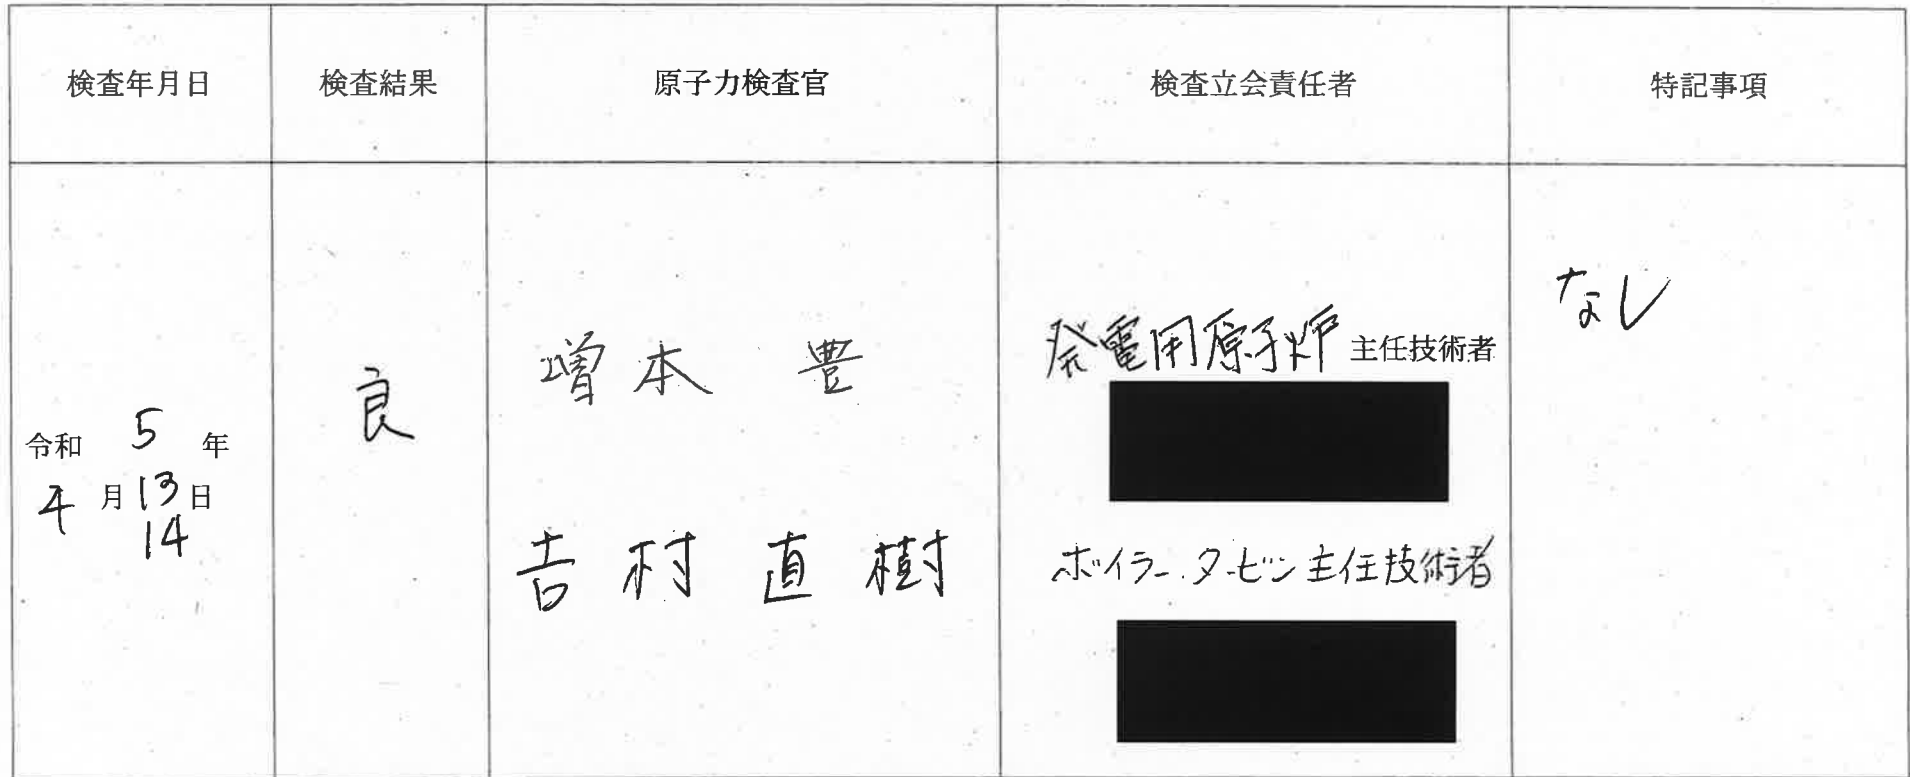 検査年月日
検査結果
原子力検査官
検査立会責任者
特記事項
令和 5 年
4 月 13 日
14
良
増本 豊
吉村 直樹
発電用原子炉 主任技術者
ボイラー・タービン主任技術者
なし